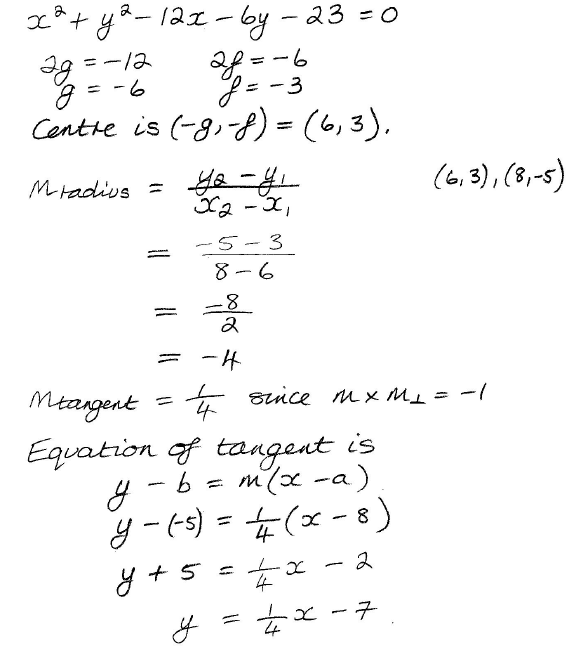 x² + y² - 12x - 6y - 23 = 0
2g = -12    2f = -6
g = -6    f = -3
Centre is (-g, -f) = (6, 3).
Mradius = (y₂ - y₁)/(x₂ - x₁)    (6, 3), (8, -5)
= (-5 - 3)/(8 - 6)
= -8/2
= -4
Mtangent = 1/4 since m × m⊥ = -1
Equation of tangent is
y - b = m(x - a)
y - (-5) = 1/4(x - 8)
y + 5 = 1/4x - 2
y = 1/4x - 7.